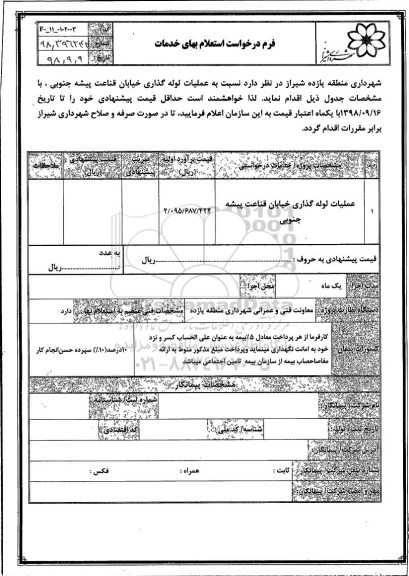 F-۰_۱۱_۰۱-۲۰۰۳
۹۸/۹/۹
فرم درخواست استعلام بهای خدمات
شهرداری منطقه یازده شیراز در نظر دارد نسبت به عملیات لوله گذاری خیابان قناعت پیشه جنوبی ، با
مشخصات جدول ذیل اقدام نماید. لذا خواهشمند است حداقل قیمت پیشنهادی خود را تا تاریخ
۱۳۹۸/۰۹/۱۶با یکماه اعتبار قیمت به این سازمان اعلام فرمایید، تا در صورت صرفه و صلاح شهرداری شیراز
برابر مقررات اقدام گردد.
مشخصات پروژه/ خدمات درخواستی
قیمت برآورد اولیه (ریال)
ضریب پیشنهادی
قیمت پیشنهادی (ریال)
ملاحظات
۱
عملیات لوله گذاری خیابان قناعت پیشه
جنوبی
۲/۰۹۵/۶۸۷/۴۲۲
قیمت پیشنهادی به حروف : ریال
به عدد
ریال
مدت اجرا: یک ماه
محل اجرا:
دستگاه نظارت پروژه: معاونت فنی و عمرانی شهرداری منطقه یازده
مشخصات فنی منضم به استعلام بهاء: دارد
کسورات پیمان
کارفرما از هر پرداخت معادل ۵٪بیمه به عنوان علی الحساب کسر و نزد
خود به امانت نگهداری مینماید وپرداخت مبلغ مذکور منوط به ارائه
مفاصاحساب بیمه از سازمان بیمه تامین اجتماعی میباشد
۱۰درصد(۱۰٪) سپرده حسن‌انجام کار
مشخصات پیمانکار
نام شرکت/ پیمانکار:
شماره ثبت/ شناسنامه:
تاریخ ثبت/ تولد:
شناسه/ کد ملی:
کد اقتصادی:
آدرس شرکت/ پیمانکار:
شماره تلفن شرکت/ پیمانکار:
ثابت :
همراه :
فکس :
مهر و امضاء شرکت/ پیمانکار: